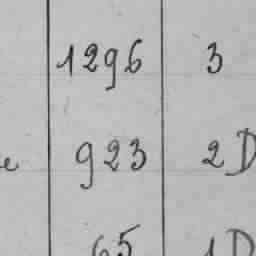 1296 3
e 923 2D
65 1D